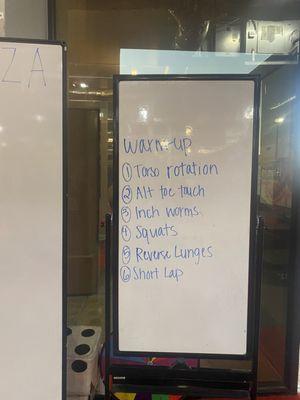 ZA
warm-up
① Torso rotation
② Alt toe touch
③ Inch worms
④ Squats
⑤ Reverse Lunges
⑥ Short Lap